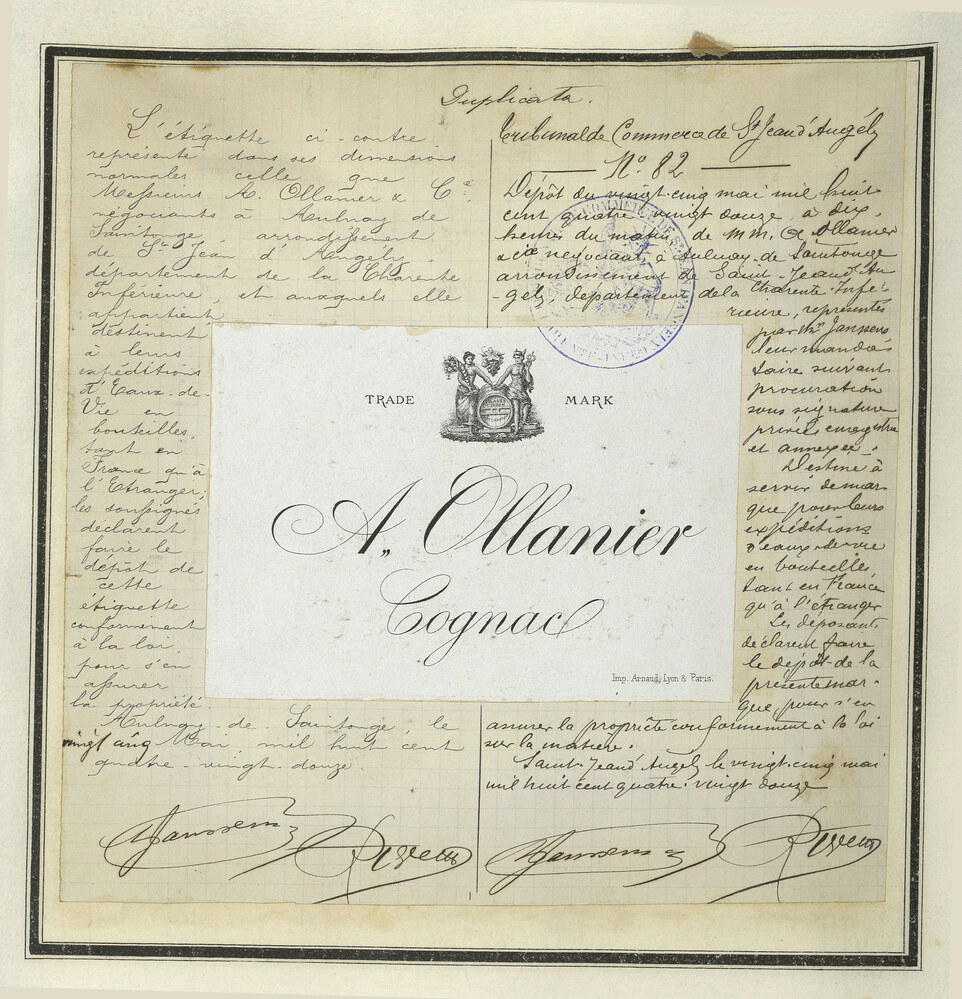 Duplicata.
L'étiquette ci-contre
représente dans ses dimensions
normales celle que
Messieurs A. Ollanier & Cie
négociants à Aulnay de
Saintonge arrondissement
de St Jean d'Angely,
département de la Charente
Inférieure et auxquels elle
appartient
destinent
à leurs
expéditions
d'Eaux-de-
Vie en
bouteilles,
tant en
France qu'à
l'Etranger;
les soussignés
déclarent
faire le
dépôt de
cette
étiquette
conformément
à la loi,
pour s'en
assurer
la propriété.
Aulnay-de-Saintonge, le
vingt cinq Mai, mil huit cent
quatre-vingt-douze.
Janssens
Tribunal de Commerce de St Jean d'Angély
No. 82
Dépôt du vingt-cinq mai mil huit
cent quatre-vingt douze, à dix
heures du matin, de MM. A Ollanier
& Cie négociant, à Aulnay-de-Saintonge
arrondissement de Saint-Jean d'An-
gely, département de la Charente-Infé-
rieure, représentés
par Mr Janssens
leur manda-
taire suivant
procuration
sous signature
privée enregistrée
et annexée.
Destiné à
servir de mar-
que pour leurs
expéditions
d'eaux-de-vie
en bouteilles
tant en France
qu'à l'étranger
Les déposants
déclarent faire
le dépôt de la
présente mar-
que, pour s'en
assurer la propriété conformement à la loi
sur la matière.
Saint-Jean d'Angely le vingt-cinq mai
mil huit cent quatre-vingt douze
Janssens
TRADE MARK
A. Ollanier
Cognac
Imp. Arnaud, Lyon & Paris.